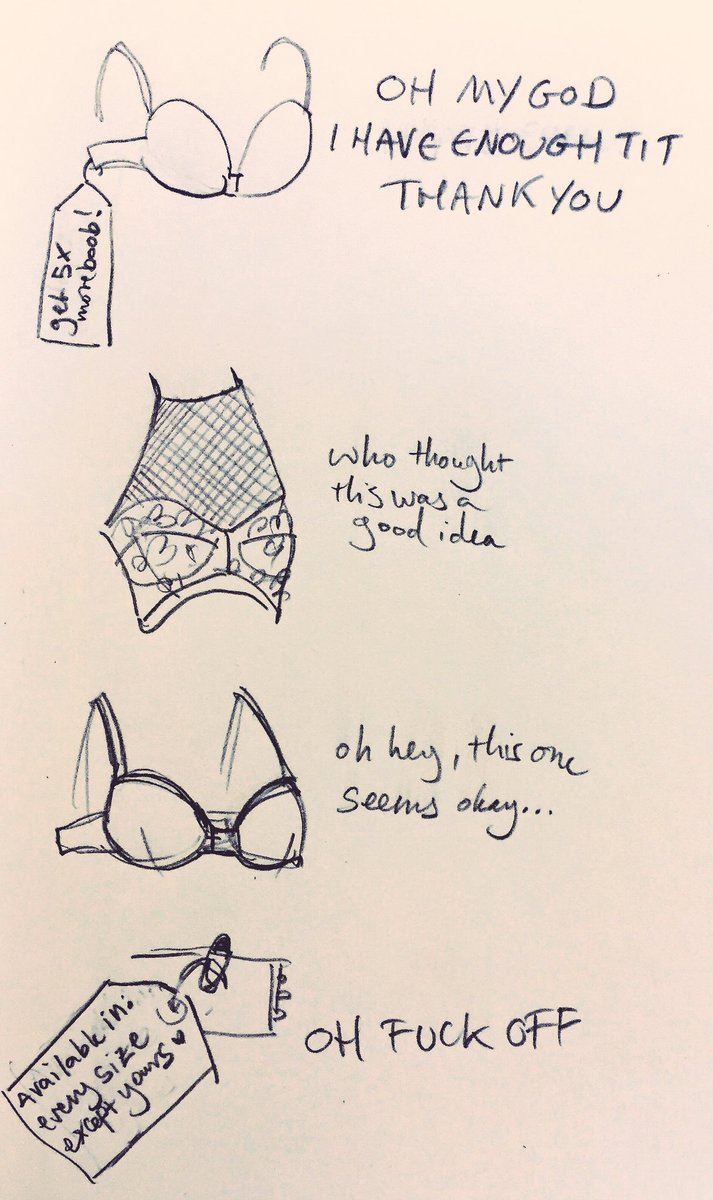 OH MY GOD
I HAVE ENOUGH TIT
THANK YOU
get 5x
more boob!
who thought
this was a
good idea
oh hey, this one
seems okay...
Available in:
every size
except yours ♥
OH FUCK OFF